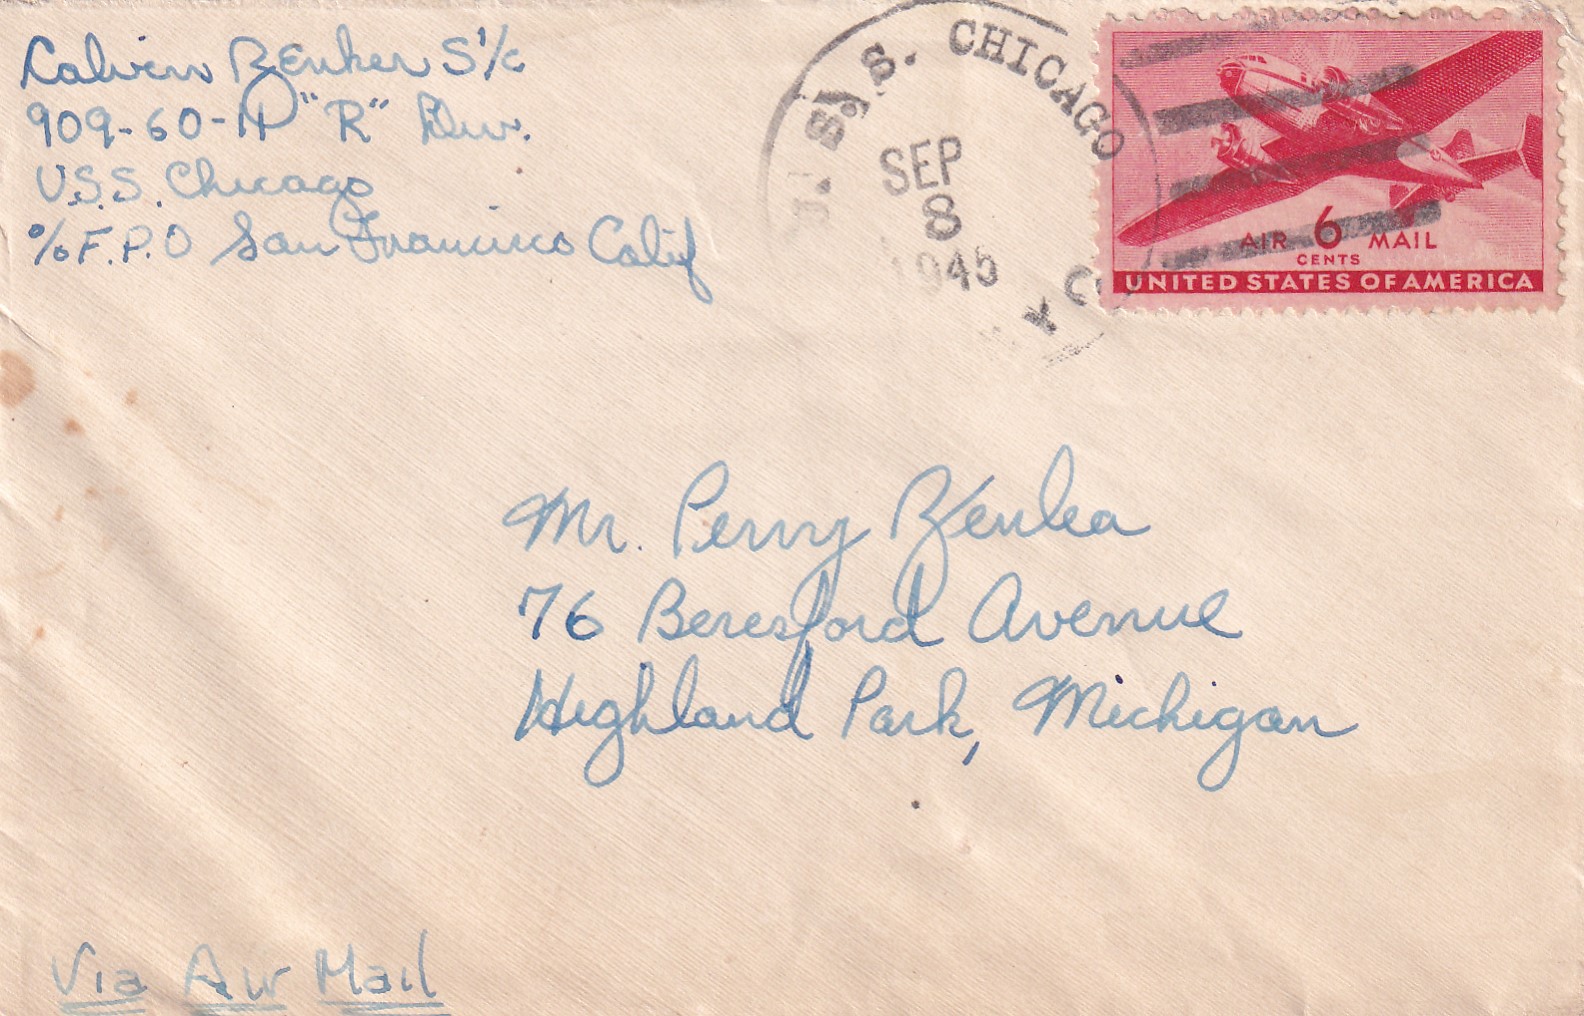 Calvin Zenker S 1/c
909-60-14 "R" Div.
U.S.S. Chicago
c/o F.P.O San Francisco Calif
U. S. S. CHICAGO
SEP
8
1945
AIR 6 MAIL
CENTS
UNITED STATES OF AMERICA
Mr. Perry
76 Beresford Avenue
Highland Park, Michigan
Via Air Mail